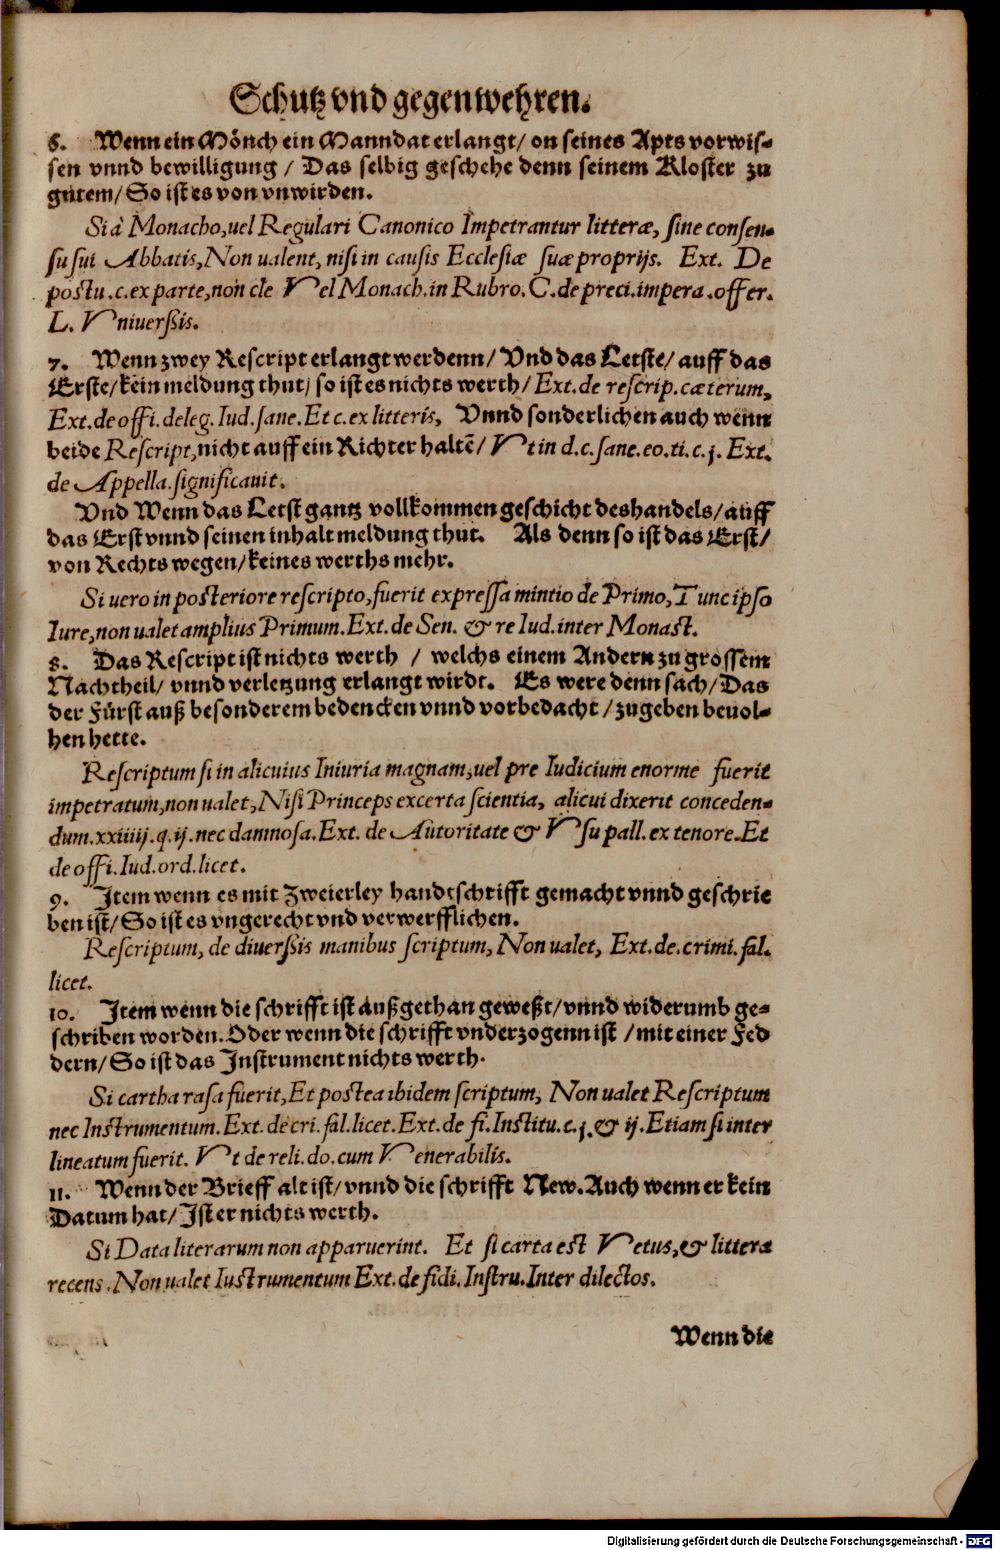 Schutz vnd gegenwehren.
6. Wenn ein Mönch ein Manndat erlangt/ on seines Apts vorwis-
sen vnnd bewilligung / Das selbig geschehe denn seinem Kloster zu
gutem/ So ist es von vnwirden.
Si à Monacho, uel Regulari Canonico Impetrantur litteræ, sine consen-
su sui Abbatis, Non ualent, nisi in causis Ecclesiæ suæ proprijs. Ext. De
postu. c. ex parte, non cle Vel Monach. in Rubro. C. de preci. impera. offer.
L. Vniuersis.
7. Wenn zwey Rescript erlangt werdenn/ Vnd das Letste/ auff das
Erste/ kein meldung thut/ so ist es nichts werth/ Ext. de rescrip. cæterum,
Ext. de offi. deleg. Iud. sane. Et c. ex litteris, Vnnd sonderlichen auch wenn
beide Rescript, nicht auff ein Richter haltē/ Vt in d. c. sane. eo. ti. c. j. Ext.
de Appella. significauit.
Vnd Wenn das Letst gantz vollkommen geschicht deshandels/ auff
das Erst vnnd seinen inhalt meldung thut. Als denn so ist das Erst/
von Rechts wegen/ keines werths mehr.
Si uero in posteriore rescripto, fuerit expressa mintio de Primo, Tunc ipso
Iure, non ualet amplius Primum. Ext. de Sen. & re Iud. inter Monast.
8. Das Rescript ist nichts werth / welchs einem Andern zu grossem
Nachtheil/ vnnd verletzung erlangt wirdt. Es were denn sach/ Das
der Fürst auß besonderem bedencken vnnd vorbedacht / zugeben beuol-
hen hette.
Rescriptum si in alicuius Iniuria magnam, uel pre Iudicium enorme fuerit
impetratum, non ualet, Nisi Princeps excerta scientia, alicui dixerit conceden-
dum. xxiiiij. q. ij. nec damnosa. Ext. de Autoritate & Vsu pall. ex tenore. Et
de offi. Iud. ord. licet.
9. Item wenn es mit Zweierley handtschrifft gemacht vnnd geschrie
ben ist/ So ist es vngerecht vnd verwerfflichen.
Rescriptum, de diuersis manibus scriptum, Non ualet, Ext. de. crimi. fal.
licet.
10. Item wenn die schrifft ist außgethan geweßt/ vnnd widerumb ge-
schriben worden. Oder wenn die schrifft vnderzogenn ist / mit einer Fed
dern/ So ist das Instrument nichts werth.
Si cartha rasa fuerit, Et postea ibidem scriptum, Non ualet Rescriptum
nec Instrumentum. Ext. de cri. fal. licet. Ext. de fi. Institu. c. j. & ij. Etiam si inter
lineatum fuerit. Vt de reli. do. cum Venerabilis.
11. Wenn der Brieff alt ist/ vnnd die schrifft New. Auch wenn er kein
Datum hat/ Ist er nichts werth.
Si Data literarum non apparuerint. Et si carta est Vetus, & littera
recens. Non ualet Iustrumentum Ext. de fidi. Instru. Inter dilectos.
Wenn die
Digitalisierung gefördert durch die Deutsche Forschungsgemeinschaft - DFG